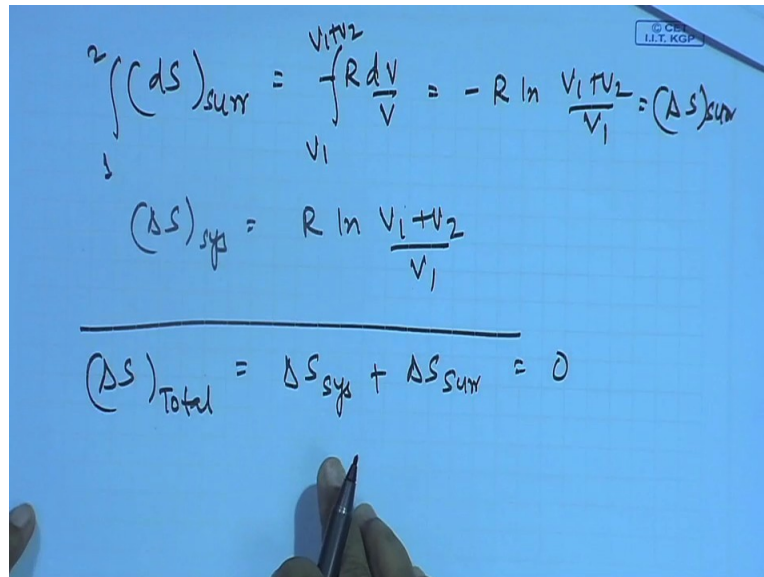 © CET
I.I.T. KGP
∫₁² (dS)surr = -∫_{V1}^{V1+V2} R dV/V = - R ln (V1+V2)/V1 = (ΔS)surr
(ΔS)sys = R ln (V1+V2)/V1
(ΔS)Total = ΔSsys + ΔSsurr = 0